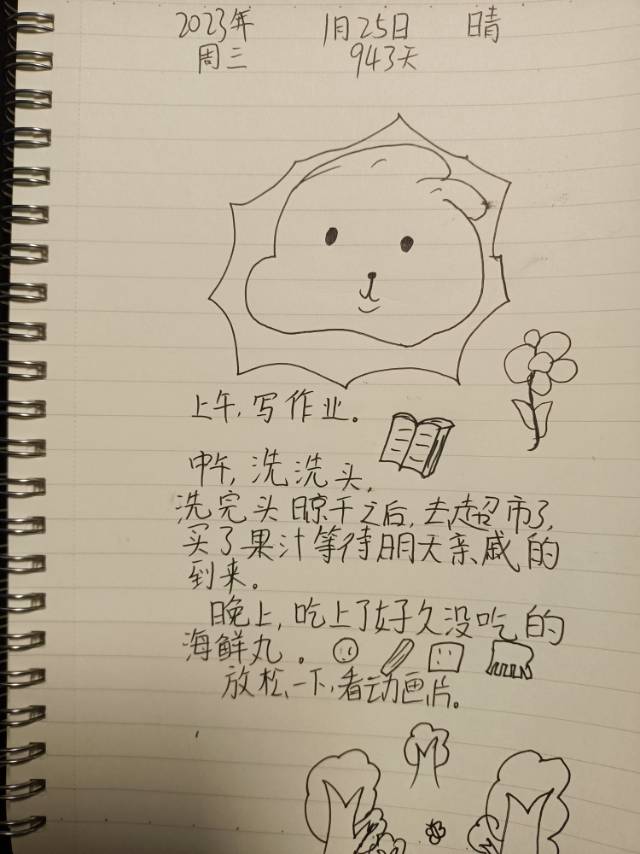 2023年 1月25日 晴
周三 943天
上午,写作业。
中午,洗洗头,
洗完头晾干之后,去超市了,
买了果汁等待明天亲戚的
到来。
晚上,吃上了好久没吃的
海鲜丸。
放松一下,看动画片。